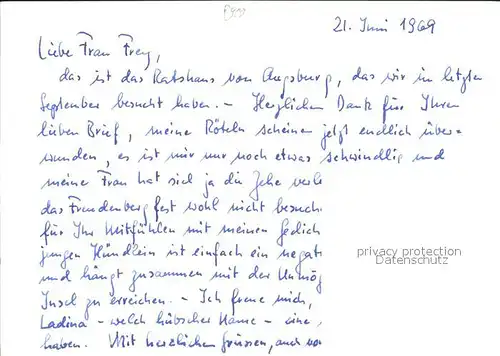 21. Juni 1969
Liebe Frau Frey,
das ist das Rathaus von Augsburg, das wir im letzten
September besucht haben. – Herzlichen Dank für Ihren
lieben Brief, meine Röteln scheinen jetzt endlich über=
wunden, es ist mir nur noch etwas schwindlig und
meine Frau hat sich ja die Zehe verle
das Freudenbergfest wohl nicht besuch
für Ihr Mitfühlen mit meinen Gedich
jungen Hündlein ist einfach ein negat
und hängt zusammen mit der Unmög
Insel zu erreichen. – Ich freue mich,
Ladina – welch hübscher Name – eine
haben. Mit herzlichen Grüssen, auch vo
privacy protection
Datenschutz